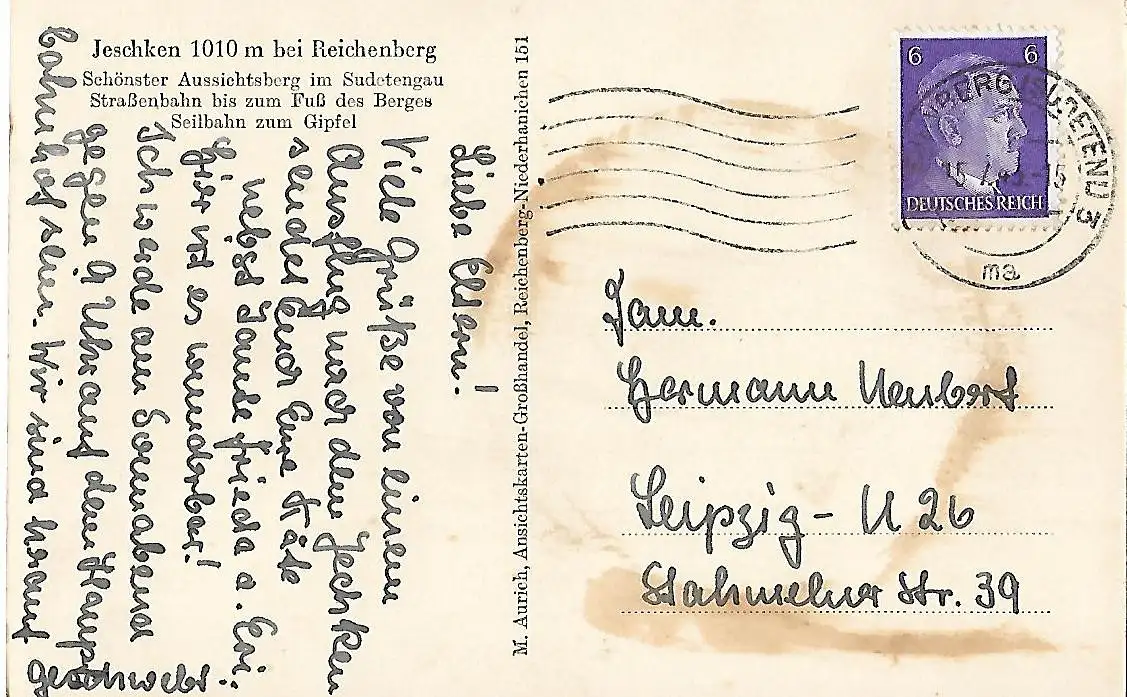 Jeschken 1010 m bei Reichenberg
Schönster Aussichtsberg im Sudetengau
Straßenbahn bis zum Fuß des Berges
Seilbahn zum Gipfel
Liebe Eltern!
Viele Grüße von einem
Ausflug nach dem Jeschken
sendet Euch Eure Käte
nebst Tante Frieda u.
Hier ist es wunderbar!
Ich werde am Sonnabend
gegen 9 Uhr auf dem Haupt
bahnhof sein. Wir sind herauf
M. Aurich, Ansichtskarten-Großhandel, Reichenberg-Niederhanichen 151
6 6
DEUTSCHES REICH
(SUDETENL) 3
ma
Fam.
Hermann Neubert
Leipzig - N 26
Stahmelner Str. 39